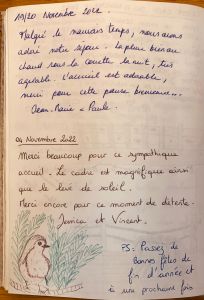 19/20 Novembre 2022.
Malgré le mauvais temps, nous avons
adoré notre séjour. La pluie bien au
chaud sous la couette la nuit, très
agréable. L'accueil est adorable,
merci pour cette pause bienvenue...
Jean-Marie & Paule.
04 Novembre 2022
Merci beaucoup pour ce sympathique
accueil. Le cadre est magnifique ainsi
que le levé de soleil.
Merci encore pour ce moment de détente.
Jessica et Vincent.
PS: Passez de
Bonnes fêtes de
fin d'année et
à une prochaine fois